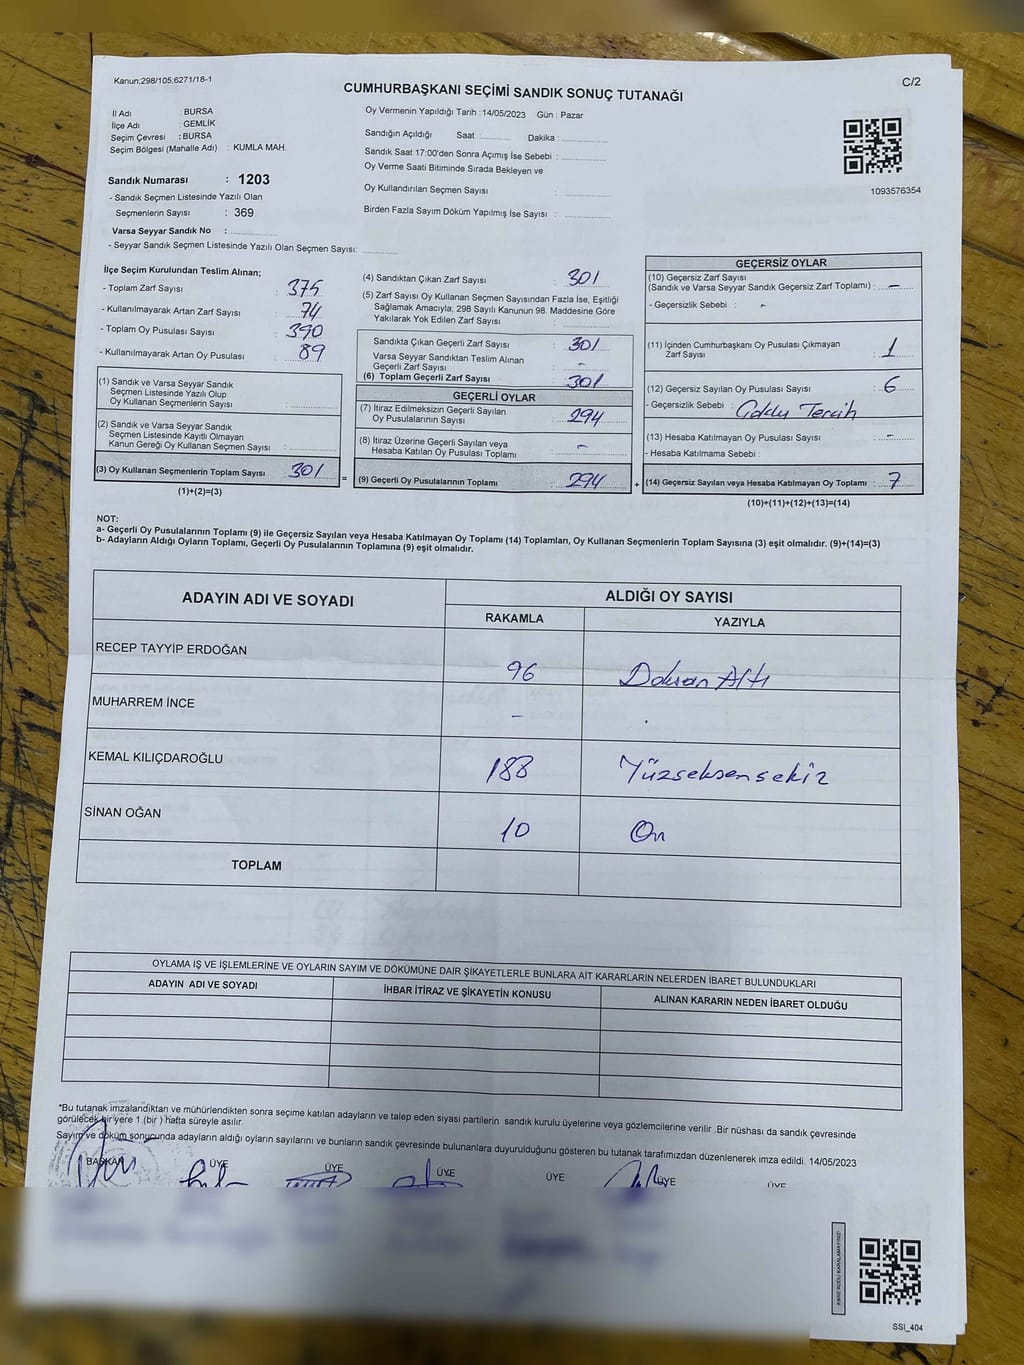 Kanun;298/105;6271/18-1
C/2
CUMHURBAŞKANI SEÇİMİ SANDIK SONUÇ TUTANAĞI
İl Adı : BURSA
İlçe Adı : GEMLİK
Seçim Çevresi : BURSA
Seçim Bölgesi (Mahalle Adı) : KUMLA MAH.
Sandık Numarası : 1203
- Sandık Seçmen Listesinde Yazılı Olan
Seçmenlerin Sayısı : 369
Varsa Seyyar Sandık No :
- Seyyar Sandık Seçmen Listesinde Yazılı Olan Seçmen Sayısı:
Oy Vermenin Yapıldığı Tarih :14/05/2023 Gün : Pazar
Sandığın Açıldığı Saat : Dakika :
Sandık Saat 17:00'den Sonra Açımış İse Sebebi :
Oy Verme Saati Bitiminde Sırada Bekleyen ve
Oy Kullandırılan Seçmen Sayısı :
Birden Fazla Sayım Döküm Yapılmış İse Sayısı :
1093576354
İlçe Seçim Kurulundan Teslim Alınan;
- Toplam Zarf Sayısı : 375
- Kullanılmayarak Artan Zarf Sayısı : 74
- Toplam Oy Pusulası Sayısı : 390
- Kullanılmayarak Artan Oy Pusulası : 89
(1) Sandık ve Varsa Seyyar Sandık
Seçmen Listesinde Yazılı Olup
Oy Kullanan Seçmenlerin Sayısı :
(2) Sandık ve Varsa Seyyar Sandık
Seçmen Listesinde Kayıtlı Olmayan
Kanun Gereği Oy Kullanan Seçmen Sayısı :
(3) Oy Kullanan Seçmenlerin Toplam Sayısı : 301 =
(1)+(2)=(3)
(4) Sandıktan Çıkan Zarf Sayısı : 301
(5) Zarf Sayısı Oy Kullanan Seçmen Sayısından Fazla İse, Eşitliği
Sağlamak Amacıyla; 298 Sayılı Kanunun 98. Maddesine Göre
Yakılarak Yok Edilen Zarf Sayısı :
Sandıkta Çıkan Geçerli Zarf Sayısı : 301
Varsa Seyyar Sandıktan Teslim Alınan
Geçerli Zarf Sayısı : -
(6) Toplam Geçerli Zarf Sayısı : 301
GEÇERLİ OYLAR
(7) İtiraz Edilmeksizin Geçerli Sayılan
Oy Pusulalarının Sayısı : 294
(8) İtiraz Üzerine Geçerli Sayılan veya
Hesaba Katılan Oy Pusulası Toplamı : -
(9) Geçerli Oy Pusulalarının Toplamı : 294 +
GEÇERSİZ OYLAR
(10) Geçersiz Zarf Sayısı
(Sandık ve Varsa Seyyar Sandık Geçersiz Zarf Toplamı) : -
- Geçersizlik Sebebi : -
(11) İçinden Cumhurbaşkanı Oy Pusulası Çıkmayan
Zarf Sayısı : 1
(12) Geçersiz Sayılan Oy Pusulası Sayısı : 6
- Geçersizlik Sebebi : Tercih
(13) Hesaba Katılmayan Oy Pusulası Sayısı : -
- Hesaba Katılmama Sebebi :
(14) Geçersiz Sayılan veya Hesaba Katılmayan Oy Toplamı : 7
(10)+(11)+(12)+(13)=(14)
NOT:
a- Geçerli Oy Pusulalarının Toplamı (9) ile Geçersiz Sayılan veya Hesaba Katılmayan Oy Toplamı (14) Toplamları, Oy Kullanan Seçmenlerin Toplam Sayısına (3) eşit olmalıdır. (9)+(14)=(3)
b- Adayların Aldığı Oyların Toplamı, Geçerli Oy Pusulalarının Toplamına (9) eşit olmalıdır.
ADAYIN ADI VE SOYADI ALDIĞI OY SAYISI
RAKAMLA YAZIYLA
RECEP TAYYİP ERDOĞAN 96 Doksan Altı
MUHARREM İNCE - .
KEMAL KILIÇDAROĞLU 188 Yüzseksensekiz
SİNAN OĞAN 10 On
TOPLAM
OYLAMA İŞ VE İŞLEMLERİNE VE OYLARIN SAYIM VE DÖKÜMÜNE DAİR ŞİKAYETLERLE BUNLARA AİT KARARLARIN NELERDEN İBARET BULUNDUKLARI
ADAYIN ADI VE SOYADI İHBAR İTİRAZ VE ŞİKAYETİN KONUSU ALINAN KARARIN NEDEN İBARET OLDUĞU
*Bu tutanak imzalandıktan ve mühürlendikten sonra seçime katılan adayların ve talep eden siyasi partilerin sandık kurulu üyelerine veya gözlemcilerine verilir .Bir nüshası da sandık çevresinde
görülecek bir yere 1 (bir ) hafta süreyle asılır.
Sayım ve döküm sonucunda adayların aldığı oyların sayılarını ve bunların sandık çevresinde bulunanlara duyurulduğunu gösteren bu tutanak tarafımızdan düzenlenerek imza edildi. 14/05/2023
BAŞKAN ÜYE ÜYE ÜYE ÜYE ÜYE ÜYE
KARE KODU KARALAMAYINIZ!
SSI_404